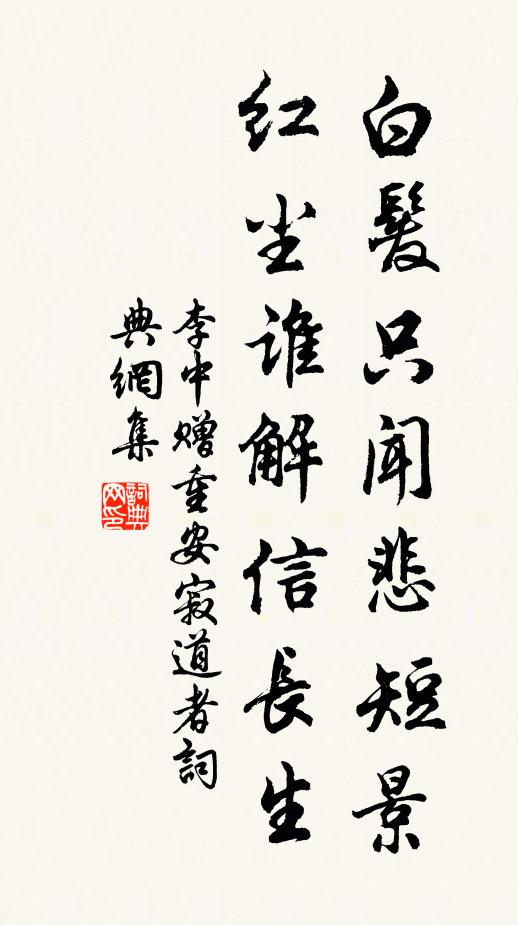 白髮只闻悲短景
红尘谁解信長生
李中赠重安寂道者詞
典網集
詞典网印